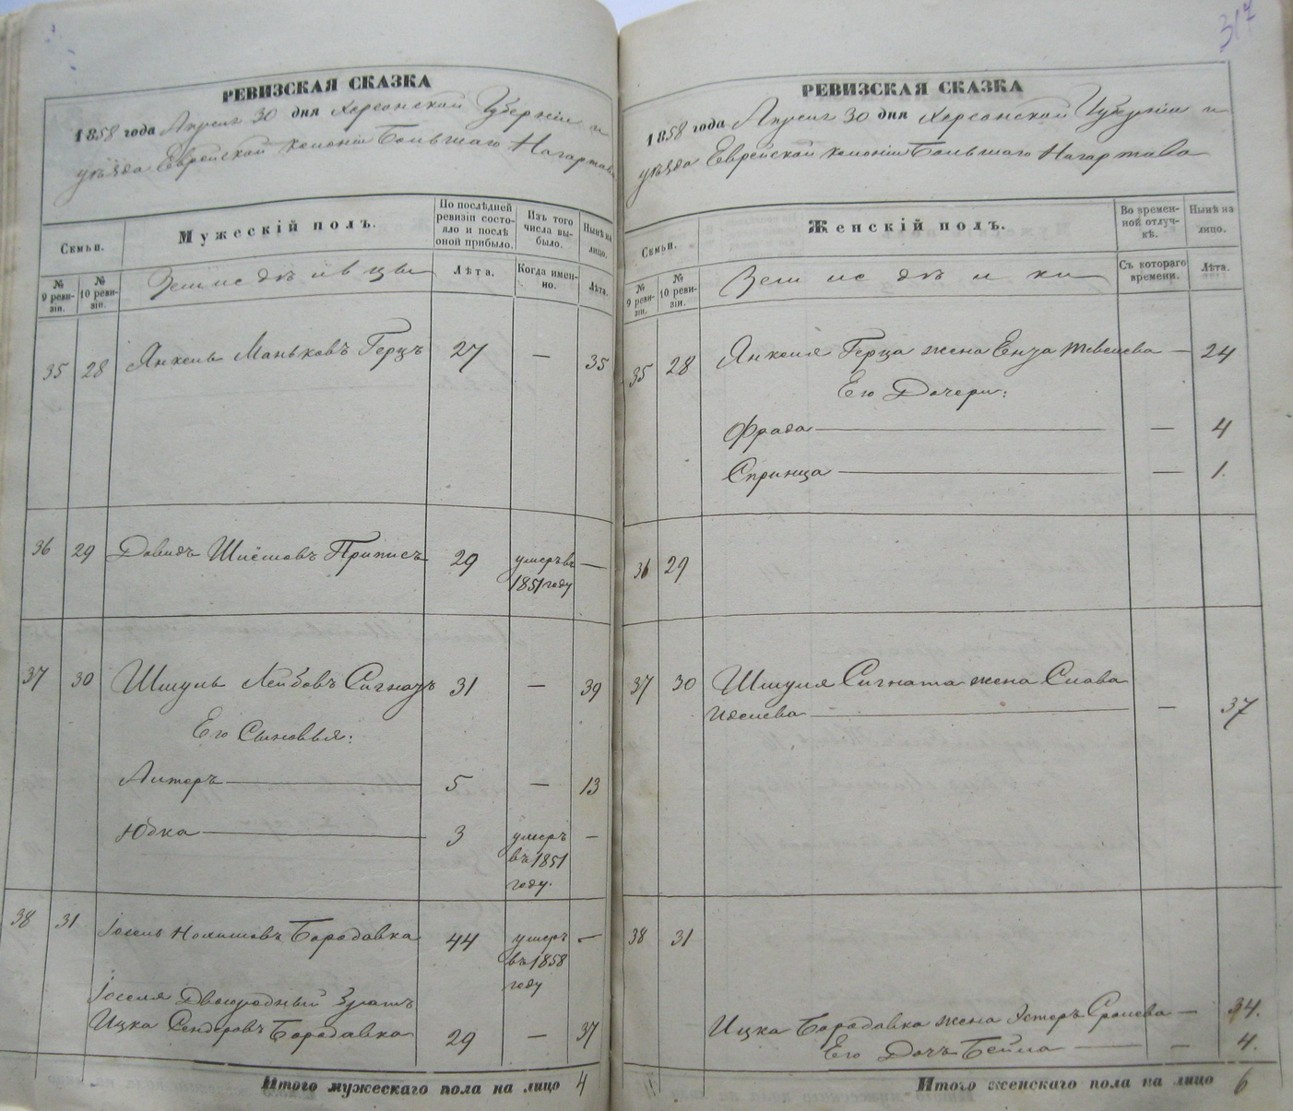 РЕВИЗСКАЯ СКАЗКА
1858 года Апреля 30 дня Херсонской Губерніи и
уѣзда Еврейской колоніи Большаго Нагартава
Семьи.
Мужескій полъ.
По послѣдней ревизіи состояло и послѣ оной прибыло.
Изъ того числа выбыло.
Нынѣ на лицо.
№ 9 ревизіи.
№ 10 ревизіи.
Земледѣльцы
Лѣта.
Когда именно.
Лѣта.
35 28 Янкель Маньковъ Герцъ 27 — 35
36 29 Давидъ Припись 29 умеръ въ 1851 году —
37 30 Шмуль Лейбовъ Сигналъ 31 — 39
Его Сыновья:
Литеръ 5 — 13
Юдка 3 умеръ въ 1851 году. —
38 31 Іосель Бородавка 44 умеръ въ 1858 году —
Іоселя Двоюродный братъ
Ицка Сендеровъ Бородавка 29 — 37
Итого мужескаго пола на лицо 4
317
РЕВИЗСКАЯ СКАЗКА
1858 года Апреля 30 дня Херсонской Губерніи и
уѣзда Еврейской колоніи Большаго Нагартава
Семьи.
Женскій полъ.
Во временной отлучкѣ.
Нынѣ на лицо.
№ 9 ревизіи.
№ 10 ревизіи.
Съ котораго времени.
Лѣта.
35 28 Янкеля Герца жена — 24
Его Дочери:
Фрада — 4
Спринца — 1.
36 29
37 30 Шмуля жена Слава
— 37
38 31
Ицка Бородавка жена Эстеръ Сролева — 34.
Его Дочь Бейла — 4.
Итого женскаго пола на лицо 6